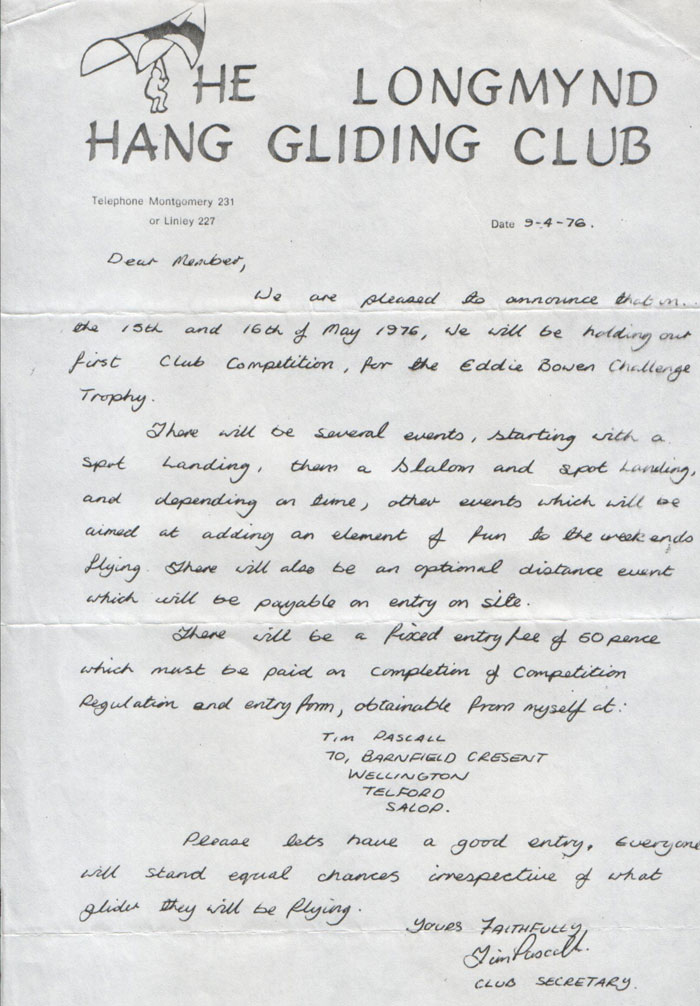 THE LONGMYND
HANG GLIDING CLUB
Telephone Montgomery 231
or Linley 227
Date 9-4-76.
Dear Member,
We are pleased to announce that on
the 15th and 16th of May 1976, we will be holding our
first Club Competition, for the Eddie Bowen Challenge
Trophy.
There will be several events, starting with a
spot Landing, them a Slalom and spot Landing,
and depending on time, other events which will be
aimed at adding an element of fun to the week ends
flying. There will also be an optional distance event
which will be payable on entry on site.
There will be a fixed entry fee of 50 pence
which must be paid on completion of Competition
Regulation and entry form, obtainable from myself at:
TIM PASCALL
70, BARNFIELD CRESENT
WELLINGTON
TELFORD
SALOP.
Please lets have a good entry, Everyone
will stand equal chances irrespective of what
glider they will be flying.
YOURS FAITHFULLY,
Tim Pascall.
CLUB SECRETARY.